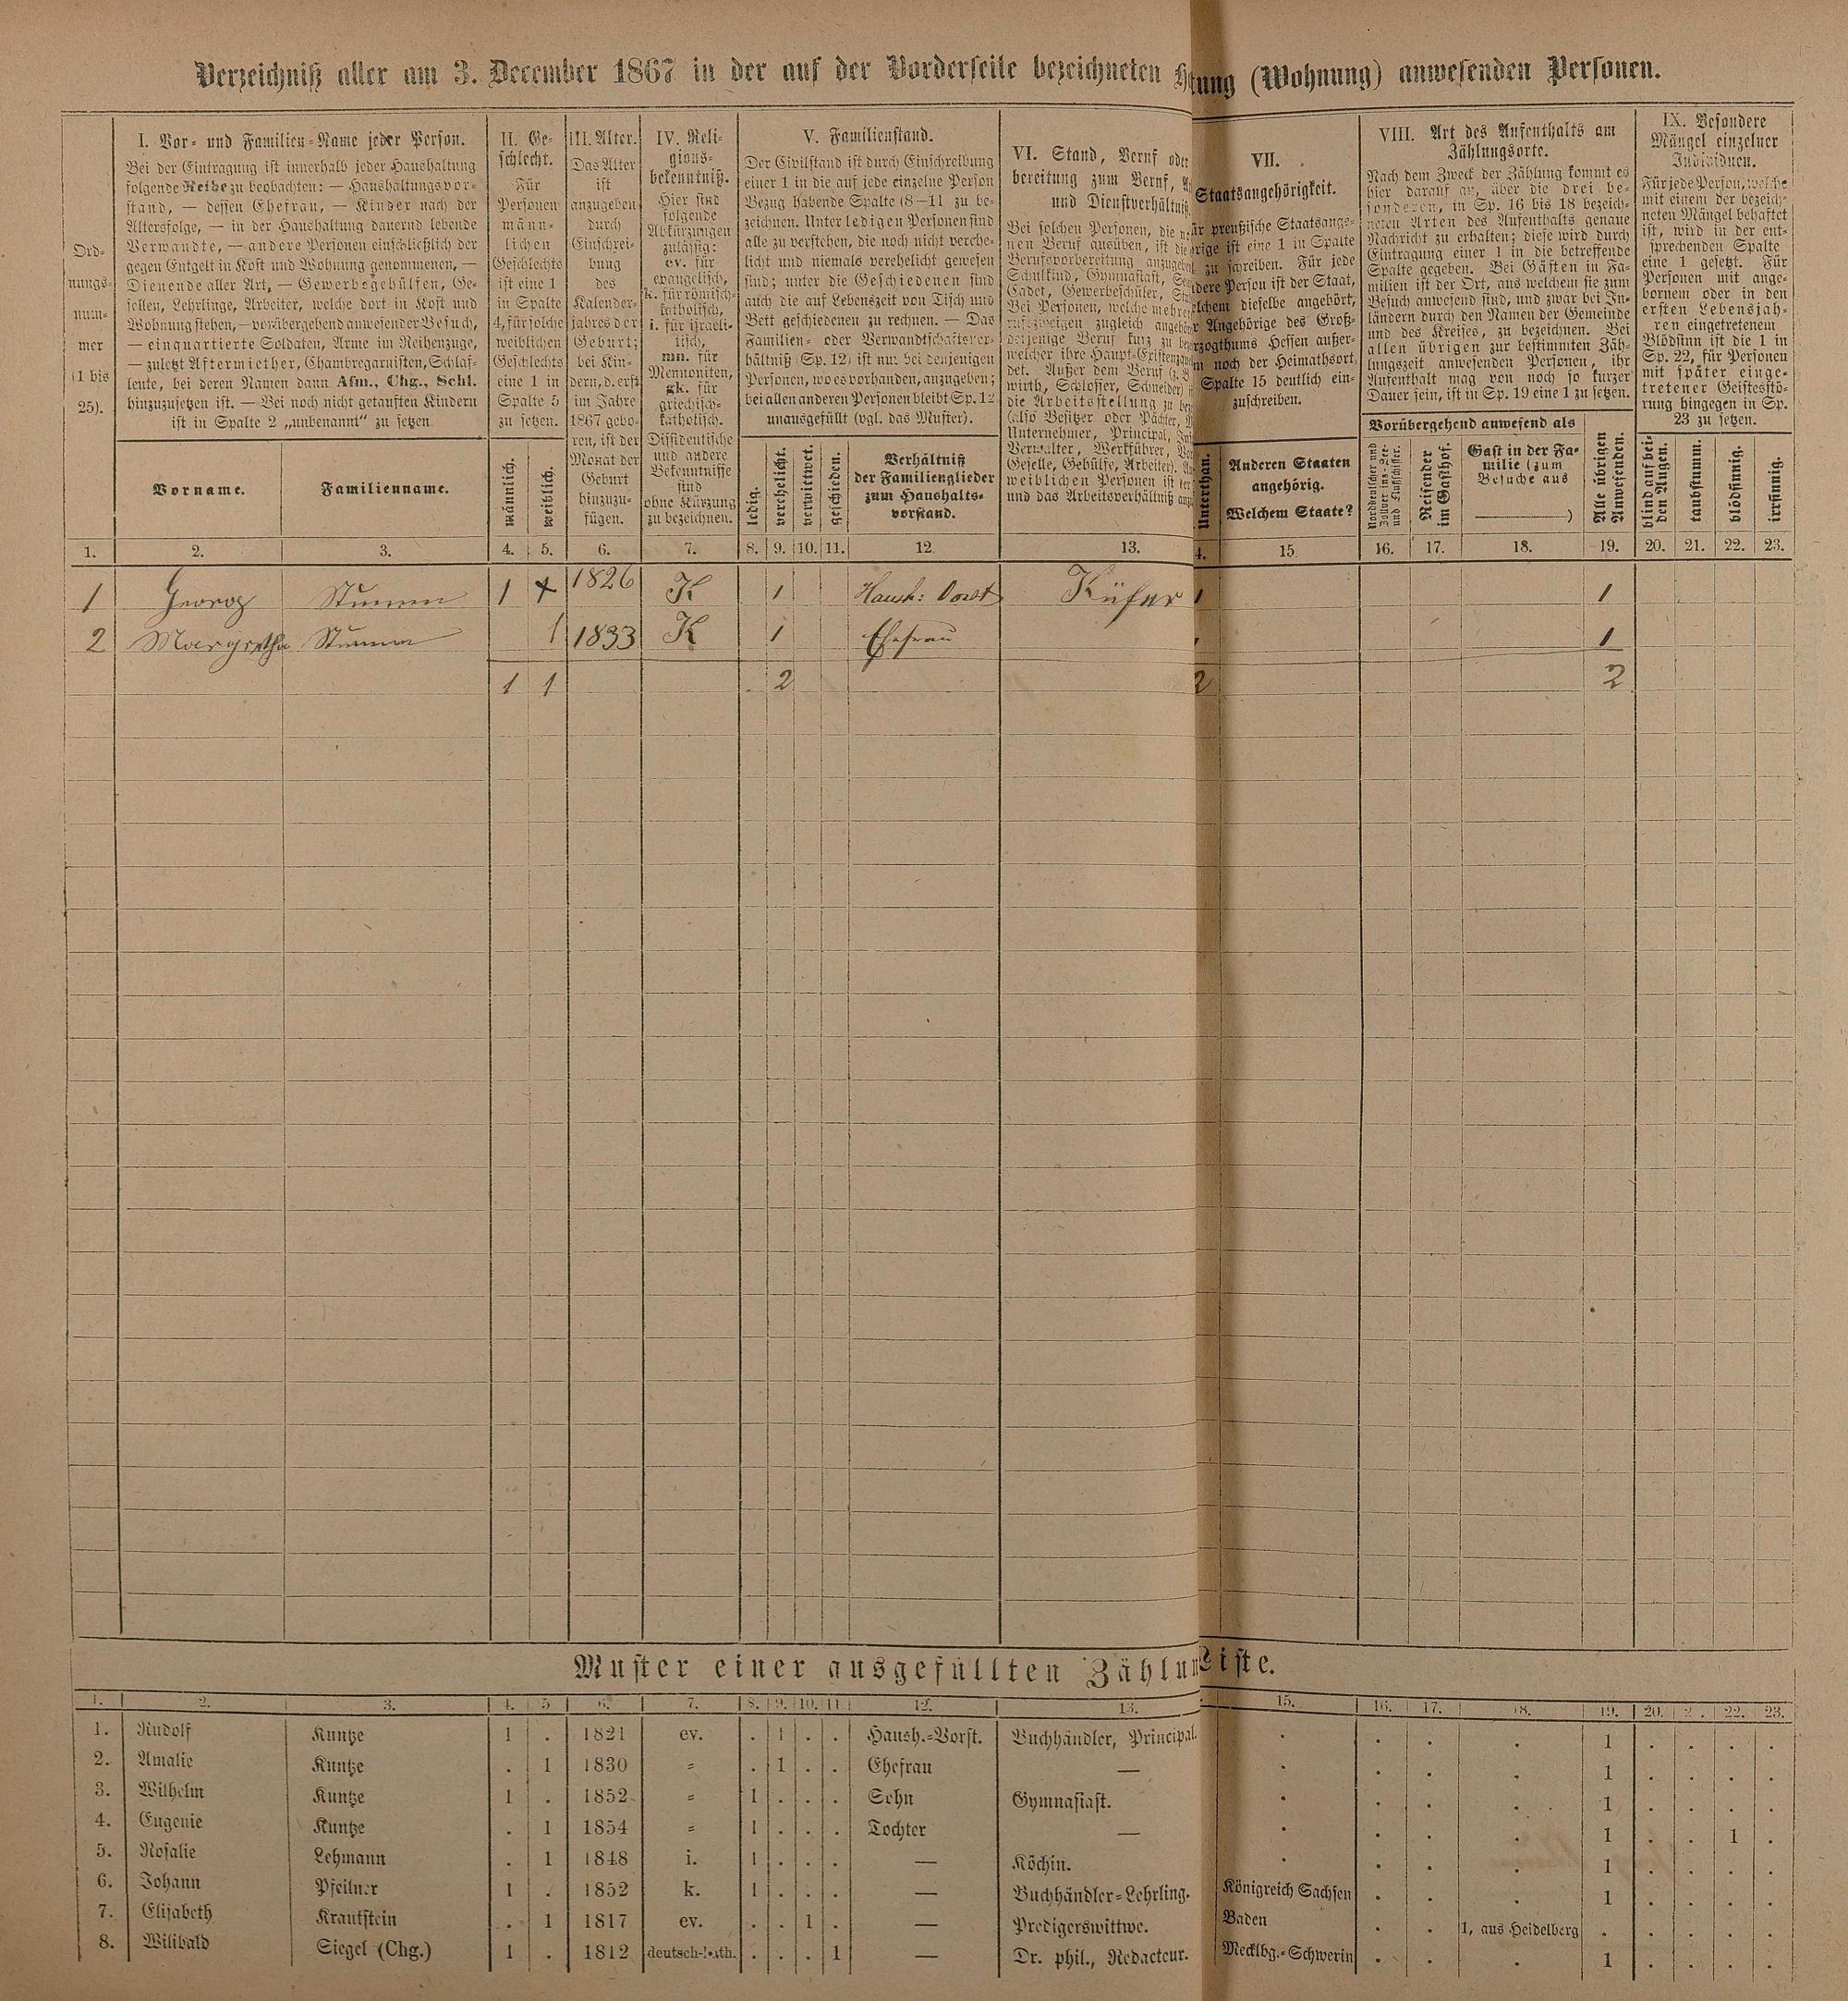 Verzeichniß aller am 3. December 1867 in der auf der Vorderseite bezeichneten H tung (Wohnung) anwesenden Personen.
Ord-
nungs-
num-
mer
(1 bis
25).
I. Vor- und Familien-Name jeder Person.
Bei der Eintragung ist innerhalb jeder Haushaltung
folgende Reihe zu beobachten: — Haushaltungsvor-
stand, — dessen Ehefrau, — Kinder nach der
Altersfolge, — in der Haushaltung dauernd lebende
Verwandte, — andere Personen einschließlich der
gegen Entgelt in Kost und Wohnung genommenen, —
Dienende aller Art, — Gewerbegehülfen, Ge-
sellen, Lehrlinge, Arbeiter, welche dort in Kost und
Wohnung stehen, — vorübergehend anwesender Besuch,
— einquartierte Soldaten, Arme im Reihenzuge,
— zuletzt Aftermiether, Chambregarnisten, Schlaf-
leute, bei deren Namen dann Afm., Chg., Schl.
hinzuzusetzen ist. — Bei noch nicht getauften Kindern
ist in Spalte 2 „unbenannt“ zu setzen.
Vorname.
Familienname.
II. Ge-
schlecht.
Für
Personen
männ-
lichen
Geschlechts
ist eine 1
in Spalte
4, für solche
weiblichen
Geschlechts
eine 1 in
Spalte 5
zu setzen.
männlich.
weiblich.
III. Alter.
Das Alter
ist
anzugeben
durch
Einschrei-
bung
des
Kalender-
jahres der
Geburt;
bei Kin-
dern, d. erst
im Jahre
1867 gebo-
ren, ist der
Monat der
Geburt
hinzuzu-
fügen.
IV. Reli-
gions-
bekenntniß.
Hier sind
folgende
Abkürzungen
zulässig:
ev. für
evangelisch,
k. für römisch-
katholisch,
i. für israeli-
tisch,
mn. für
Mennoniten,
gk. für
griechisch-
katholisch.
Dissidentische
und andere
Bekenntnisse
sind
ohne Kürzung
zu bezeichnen.
V. Familienstand.
Der Civilstand ist durch Einschreibung
einer 1 in die auf jede einzelne Person
Bezug habende Spalte (8–11 zu be-
zeichnen. Unter ledigen Personen sind
alle zu verstehen, die noch nicht verehe-
licht und niemals verehelicht gewesen
sind; unter die Geschiedenen sind
auch die auf Lebenszeit von Tisch und
Bett geschiedenen zu rechnen. — Das
Familien- oder Verwandtschaftsver-
hältniß (Sp. 12) ist nur bei denjenigen
Personen, wo es vorhanden, anzugeben;
bei allen anderen Personen bleibt Sp. 12
unausgefüllt (vgl. das Muster).
ledig.
verehelicht.
verwittwet.
geschieden.
Verhältniß
der Familienglieder
zum Haushalts-
vorstand.
VI. Stand, Beruf oder
bereitung zum Beruf,
und Dienstverhältniß
Bei solchen Personen, die
nen Beruf ausüben, ist die
Berufsvorbereitung anzugeben
Schulkind, Gymnasiast,
Cadet, Gewerbeschüler,
Bei Personen, welche mehre
rufszweigen zugleich angehör
derjenige Beruf kurz zu be
welcher ihre Haupt-Existenz
det. Außer dem Beruf (z. B.
wirth, Schlosser, Schneider)
die Arbeitsstellung zu be
(also Besitzer oder Pächter,
Unternehmer, Principal,
Verwalter, Werkführer,
Geselle, Gehülfe, Arbeiter).
weiblichen Personen ist
und das Arbeitsverhältniß
VII.
Staatsangehörigkeit.
är preußische Staatsange-
rige ist eine 1 in Spalte
zu schreiben. Für jede
dere Person ist der Staat,
lchem dieselbe angehört,
r Angehörige des Groß-
rzogthums Hessen außer-
m noch der Heimathsort
Spalte 15 deutlich ein-
zuschreiben.
Unterthan.
Anderen Staaten
angehörig.
Welchem Staate?
VIII. Art des Aufenthalts am
Zählungsorte.
Nach dem Zweck der Zählung kommt es
hier darauf an, über die drei be-
sonderen, in Sp. 16 bis 18 bezeich-
neten Arten des Aufenthalts genaue
Nachricht zu erhalten; diese wird durch
Eintragung einer 1 in die betreffende
Spalte gegeben. Bei Gästen in Fa-
milien ist der Ort, aus welchem sie zum
Besuch anwesend sind, und zwar bei In-
ländern durch den Namen der Gemeinde
und des Kreises, zu bezeichnen. Bei
allen übrigen, zur bestimmten Zäh-
lungszeit anwesenden Personen, ihr
Aufenthalt mag von noch so kurzer
Dauer sein, ist in Sp. 19 eine 1 zu setzen.
Vorübergehend anwesend als
Norddeutscher und
Zollvereins-See-
und Flußschiffer.
Reisender
im Gasthof.
Gast in der Fa-
milie (zum
Besuche aus
)
Alle übrigen
Anwesenden.
IX. Besondere
Mängel einzelner
Individuen.
Für jede Person, welche
mit einem der bezeich-
neten Mängel behaftet
ist, wird in der ent-
sprechenden Spalte
eine 1 gesetzt. Für
Personen mit ange-
bornem oder in den
ersten Lebensjah-
ren eingetretenem
Blödsinn ist die 1 in
Sp. 22, für Personen
mit später einge-
tretener Geistesstö-
rung hingegen in Sp.
23 zu setzen.
blind auf bei-
den Augen.
taubstumm.
blödsinnig.
irrsinnig.
1. 2. 3. 4. 5. 6. 7. 8. 9. 10. 11. 12. 13. 4. 15. 16. 17. 18. 19. 20. 21. 22. 23.
1 Georg Stumm 1 + 1826 K 1 Haush: Vorst Küfer 1 1
2 Margretha Stumm 1 1833 K 1 Ehefrau 1
1 1 2 2 2
Muster einer ausgefüllten Zählun Liste.
1. 2. 3. 4. 5 6. 7. 8. 9. 10. 11 12. 13. 15. 16. 17. 18. 19. 20. 2 . 22. 23.
1. Rudolf Kuntze 1 . 1821 ev. . 1 . . Haush.-Vorst. Buchhändler, Principal. . . . . 1 . . . .
2. Amalie Kuntze . 1 1830 " . 1 . . Ehefrau — . . . . 1 . . . .
3. Wilhelm Kuntze 1 . 1852 " 1 . . . Sohn Gymnasiast. . . . . 1 . . . .
4. Eugenie Kuntze . 1 1854 " 1 . . . Tochter — . . . . 1 . . 1 .
5. Rosalie Lehmann . 1 1848 i. 1 . . . — Köchin. . . . . 1 . . . .
6. Johann Pfeilner 1 . 1852 k. 1 . . . — Buchhändler-Lehrling. Königreich Sachsen . . . 1 . . . .
7. Elisabeth Krautstein . 1 1817 ev. . . 1 . — Predigerswittwe. Baden . . 1, aus Heidelberg . . . . .
8. Wilibald Siegel (Chg.) 1 . 1812 deutsch-kath. . . . 1 — Dr. phil., Redacteur. Mecklbg.-Schwerin . . . 1 . . . .